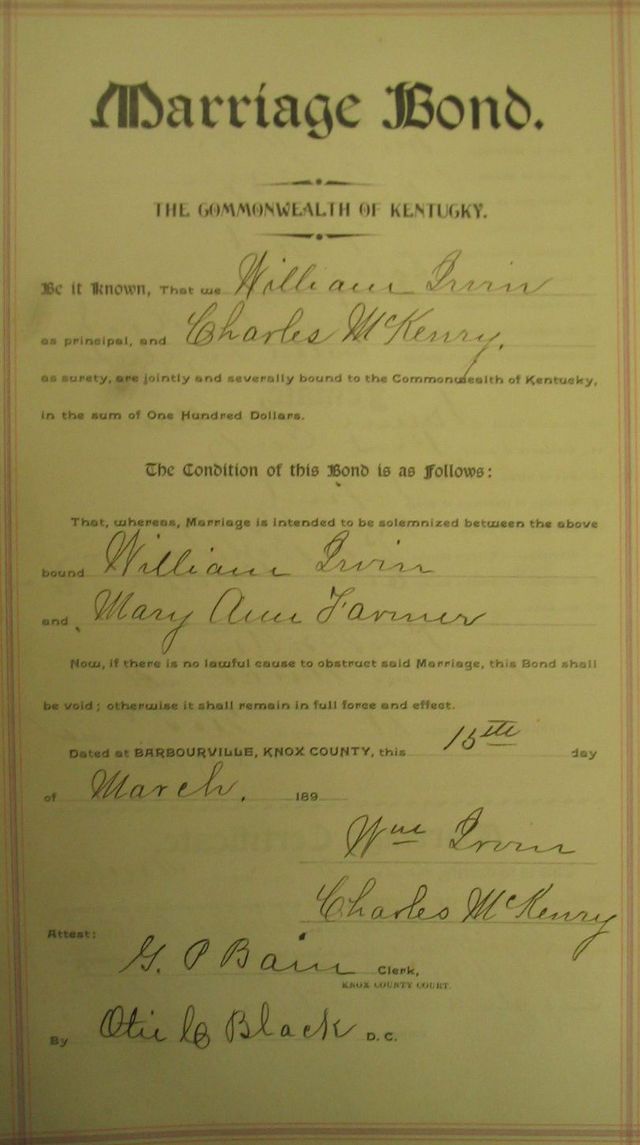 Marriage Bond.
THE COMMONWEALTH OF KENTUCKY.
Be it Known, That we William Irvin
as principal, and Charles McKenry.
as surety, are jointly and severally bound to the Commonwealth of Kentucky,
in the sum of One Hundred Dollars.
The Condition of this Bond is as Follows:
That, whereas, Marriage is intended to be solemnized between the above
bound William Irvin
and Mary Ann Farmer
Now, if there is no lawful cause to obstruct said Marriage, this Bond shall
be void; otherwise it shall remain in full force and effect.
Dated at BARBOURVILLE, KNOX COUNTY, this 15th day
of March. 189
Wm Irvin
Charles McKenry
Attest:
G. P Bain Clerk,
KNOX COUNTY COURT.
By Otie C Black D. C.